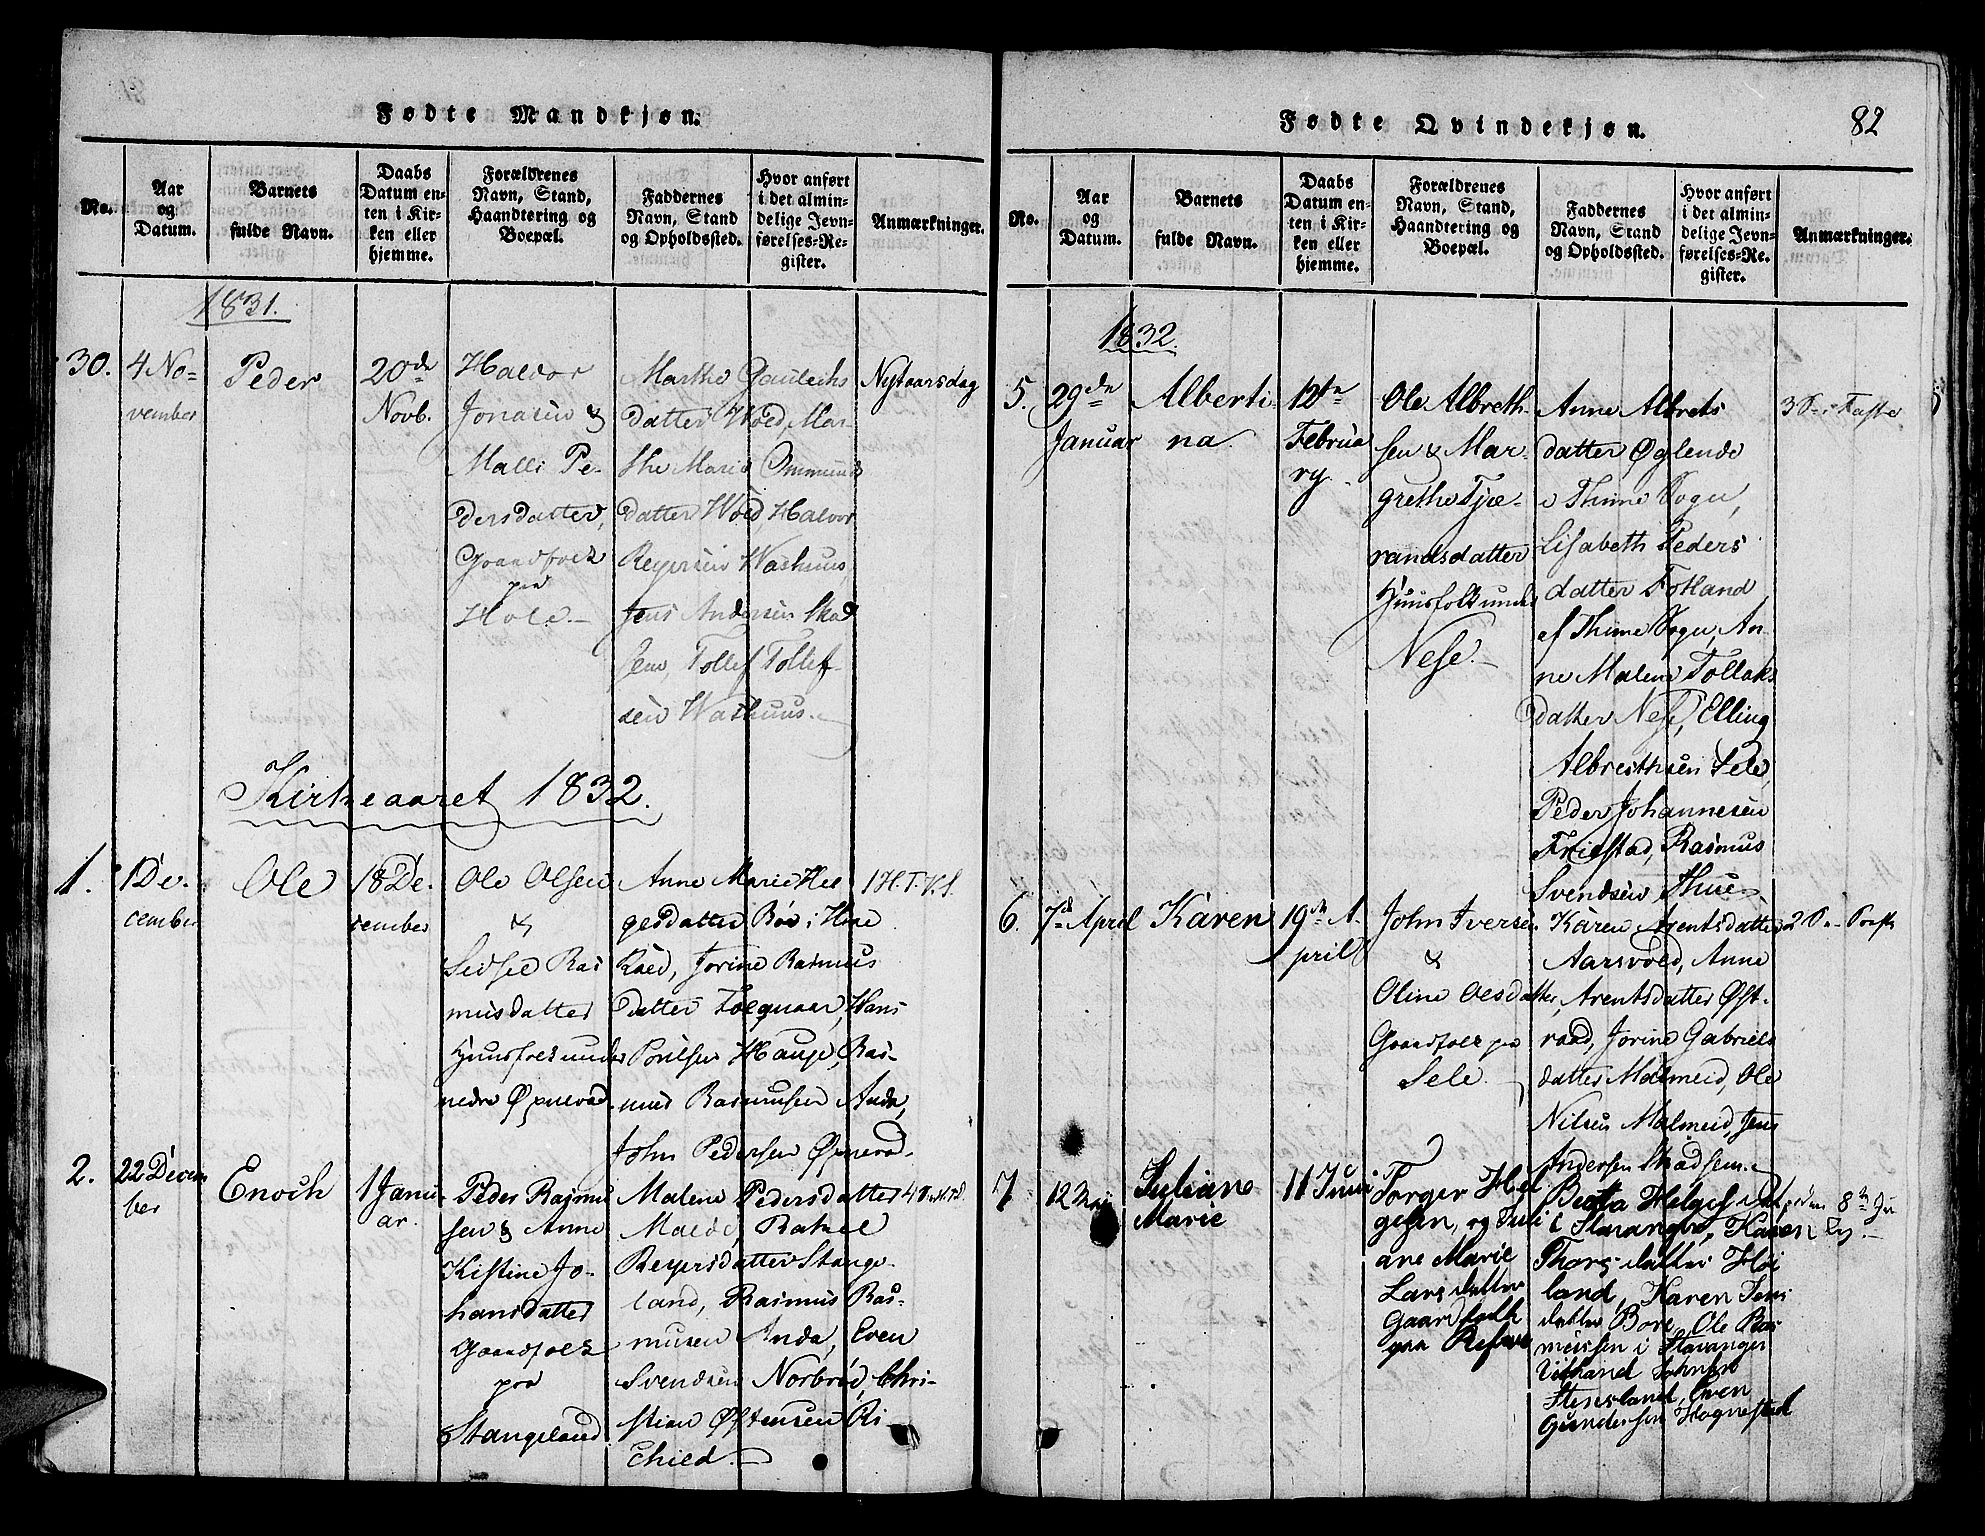 Fødte Mandkjøn.
No.
Aar
og
Datum.
Barnets
fulde Navn.
Daabs
Datum en-
ten i Kir-
ken eller
hjemme.
Forældrenes
Navn, Stand,
Haandtering og
Boepæl.
Faddernes
Navn, Stand
og Opholdssted.
Hvor anført
i det almin-
delige Jevn-
førelses-Re-
gister.
Anmærkninger.
1831.
30.
4 No-
vember
Peder
20de
Novb.
Halvor
Jonasen &
Malli Pe-
dersdatter,
Gaardfolk
paa
Hole.-
Marthe
datter Woed, Mar-
the Marie Ommunds
datter Woed Halvor
Reyersen Washuus,
Jens Andersen Skad
sem, Tollef Tollef-
sen Washuus.-
Nytaarsdag
Kirkeaaret 1832.
1.
1 De-
cember
Ole
18 De-
cember
Ole Olsen
&
Sidsel Ras
musdatter
Huusfolk under
nedre
Anne Marie Hel
gesdatter Böe i Hæe
Jorine Rasmus
datter Hans
Poulsen Hauge, Ras-
mus Rasmusen Anda,
John Pedersen
1 H.T.K.
2.
22 Decem
ber
Enoch
1 Janu-
ar.
Peder Rasmu
sen & Anne
Kistine Jo-
hansdatter
Gaardfolk
paa
Stangeland
Malene Pedersdatter
Rakel
Reyersdatter Stange-
land, Rasmus Ras-
musen Anda, Even
Svendsen Norbrö, Chri-
stian Östensen Ri
Ehield.-
Fødte Qvindekjøn.
82
No.
Aar
og
Datum.
Barnets
fulde Navn.
Daabs
Datum en-
ten i Kir-
ken eller
hjemme.
Forældrenes
Navn, Stand,
Haandtering og
Boepæl.
Faddernes
Navn, Stand
og Opholdssted.
Hvor anført
i det almin-
delige Jevn-
førelses-Re-
gister.
Anmærkninger.
1832.
5.
29de
Januar
Alberti-
na
12te
Februa
ry.
Ole Albreth
sen & Mar-
grethe Tjæ-
randsdatter
Huusfolk under
Nese.-
Anne Albrets
datter Øglende
Thime Sogn,
Lisabeth Peders
datter Fotland
af Thime Sogn, An-
ne Malene Tollaks
datter Nese, Elling
Albrethsen Sele,
Peder Johannesen
Friestad, Rasmus
Svendsen Thue-
6.
7de April
Karen
19de A-
pril
John Iversen
&
Oline Olsdatter,
Gaardfolk paa
Sele.
Karen Arentsdatter
Aarsvold, Anne
Arentsdatter Øst-
raad, Jorine Gabriels
datter Malmeid, Ole
Nilsen Malmeid, Jens
Andersen Skadsem.-
7
12 Maj
Juliane
Marie
11 Juni
Torger Hel
gesen, og Juli
ane Marie
Lars datter
Gaardfolk
paa Refsnes
Berta Helgesdat
i Stavanger, Karen
Thors datter Höi
land, Karen Jens
datter Bore, Ole Ras
mussen i Stavanger
Vitland Johnsen
Steensland, Even
Gundersen Hognestad